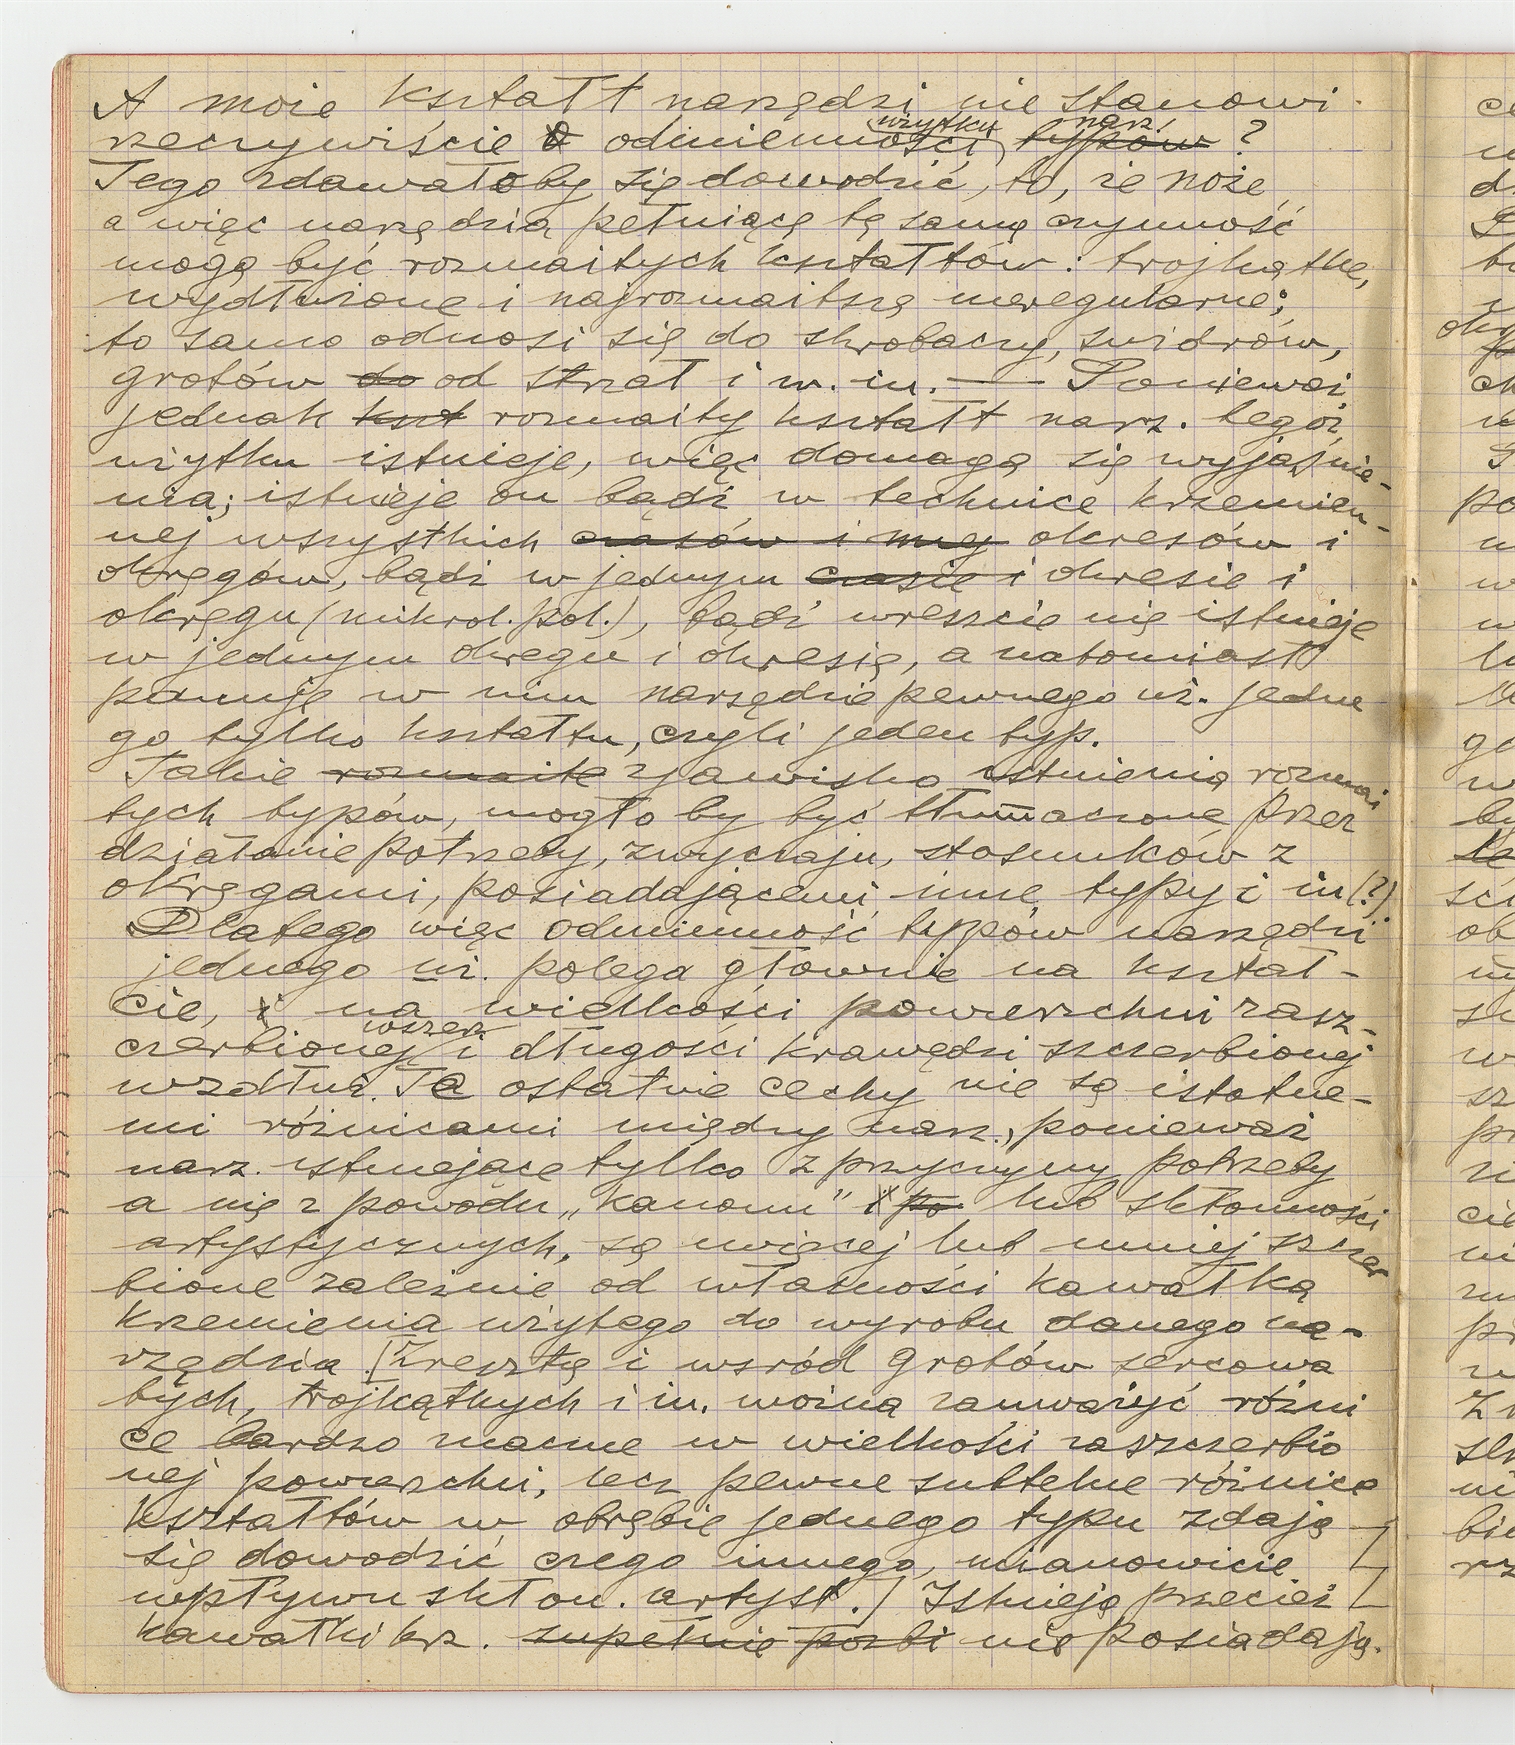 A może kształt narzędzi nie stanowi
rzeczywiście o odmienności użytku ~~typów~~ narz. ?
Tego zdawałoby się dowodzić, to, że noże
a więc narzędzia pełniące tę samą czynność
mogą być rozmaitych kształtów: trojkątne,
wydłużone i najrozmaitsze nieregularne;
to samo odnosi się do skrobaczy, swidrów,
grotów ~~do~~ od strzał i w. in. — Ponieważ
jednak ~~kszt~~ rozmaity kształt narz. tegoż
użytku istnieje, więc domaga się wyjaśnie-
nia; istnieje on bądź w technice krzemien-
nej wszystkich ~~czasów i mię~~ okresów i
okręgów, bądź w jednym ~~czasie i~~ okresie i
okręgu (mikrol. pol.), bądź wreszcie nie istnieje
w jednym okręgu i okresie, a natomiast
panuje w nim narzędzie pewnego uż. jedne
go tylko kształtu, czyli jeden typ.
Takie ~~rozmaite~~ zjawisko istnienia rozmai
tych typów, mogło by być tłumaczone przez
działanie potrzeby, zwyczaju, stosunków z
okręgami, posiadającemi inne typy i in (?)
Dlatego więc odmienność typów narzędzi
jednego uż. polega głownie na kształ-
cie, i na wielkości powierzchni zasz-
czerbionej wszerz i długości krawędzi szczerbionej
wzdłuż. Te ostatnie cechy nie są istotne-
mi różnicami między narz., ponieważ
narz. istniejące tylko z przyczyny potrzeby
a nie z powodu „kanonu" ~~i po~~ lub skłonności
artystycznych, są więcej lub mniej szczer
bione zależnie od własności kawałka
krzemienia użytego do wyrobu danego na-
rzędzia [Zresztą i wsród grotów sercowa
tych, trojkątnych i in. można zauważyć różni
ce bardzo znaczne w wielkości zaszczerbio
nej powierzchni, lecz pewne subtelne różnice
kształtów w obrębie jednego typu zdają
się dowodzić czego innego, mianowicie
wpływu skłon. artyst.] Istnieją przecież
kawałki krz. ~~zupełnie pozbi~~ nie posiadają-